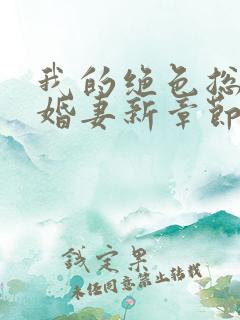 我的绝色总
婚妻新章节
钱定果
未经同意禁止转载